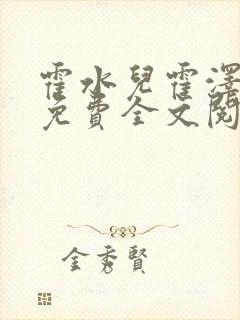 霍水兒霍澤
免費全文閱
金秀賢